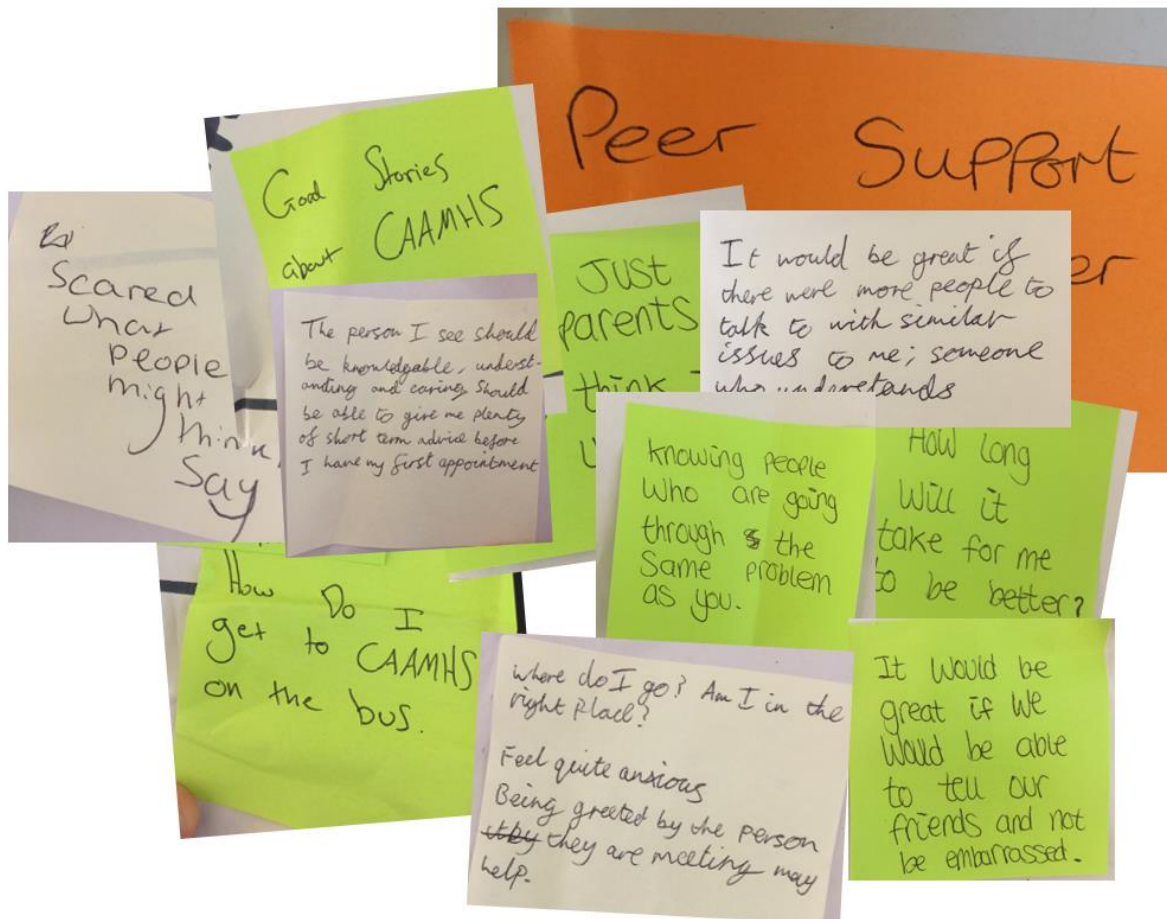 Peer Support
er
Good Stories
about CAAMHS
Scared
what
people
might
think
Say
The person I see should
be knowledgable, underst-
anding and caring, should
be able to give me plenty
of short term advice before
I have my first appointment
Just
parents
think
It would be great if
there were more people to
talk to with similar
issues to me; someone
who understands
Knowing people
who are going
through the
Same problem
as you.
How long
Will it
take for me
to be better?
How Do I
get to CAAMHS
on the bus.
where do I go? Am I in the
right place?
Feel quite anxious
Being greeted by the person
they are meeting may
help.
It would be
great if we
would be able
to tell our
friends and not
be embarrassed.